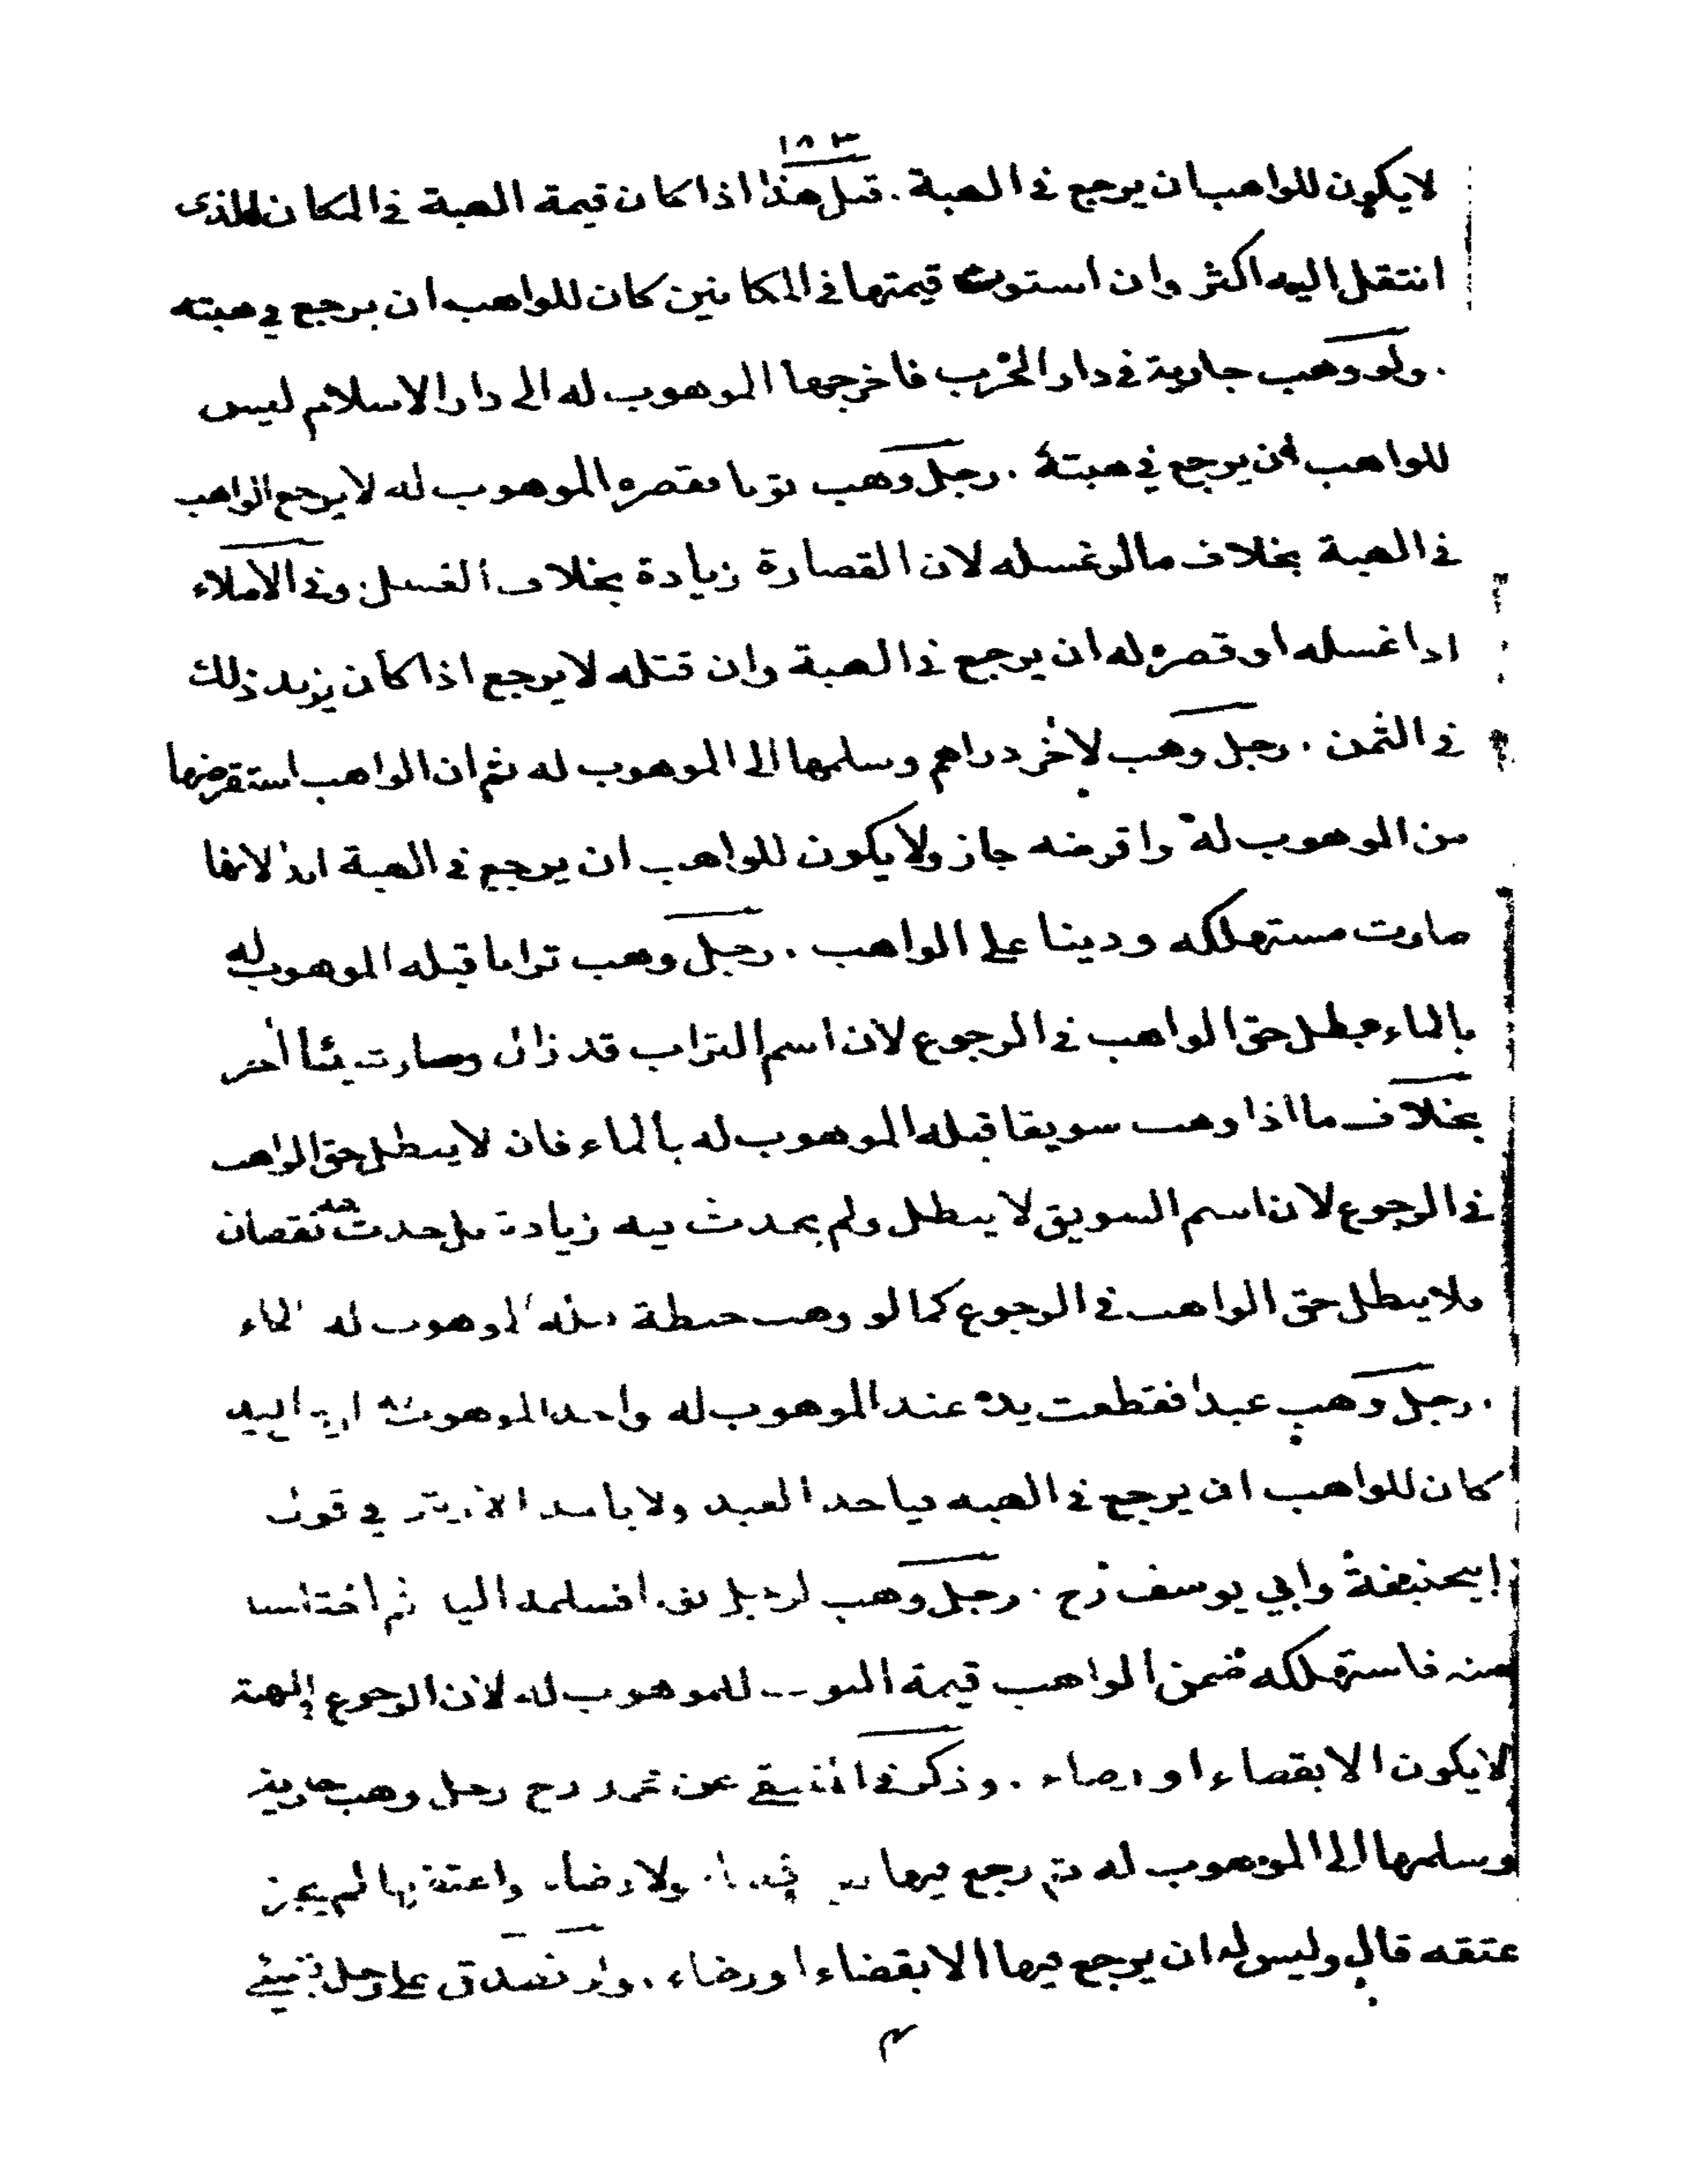 ١٨٣
لا يكون للواهب ان يرجع في الهبة . قيل هذا اذا كان قيمة الهبة في المكان الذى
انتقل اليه اكثر وان استوت قيمتها في المكانين كان للواهب ان يرجع في هبته
. ولو وهب جارية في دار الحرب فاخرجها الموهوب له الى دار الاسلام ليس
للواهب ان يرجع في هبته . رجل وهب ثوبا فقصره الموهوب له لا يرجع الواهب
في الهبة بخلاف ما لو غسله لان القصارة زيادة بخلاف الغسل . وفي الاملاء
اذا غسله او قصره له ان يرجع في الهبة وان فتله لا يرجع اذا كان يزيد ذلك
في الثمن . رجل وهب لاخر دراهم وسلمها الى الموهوب له ثم ان الواهب استقرضها
من الموهوب له واقرضه جاز ولا يكون للواهب ان يرجع في الهبة ابدا لانها
صارت مستهلكه ودينا على الواهب . رجل وهب ترابا فبله الموهوب له
بالماء بطل حق الواهب في الرجوع لان اسم التراب قد زال وصارت شيئا أخر
بخلاف ما اذا وهب سويقا فبله الموهوب له بالماء فان لا يبطل حق الواهب
في الرجوع لان اسم السويق لا يبطل ولم يحدث فيه زيادة بل حدث فيه نقصان
فلا يبطل حق الواهب في الرجوع كما لو وهب حنطة فبله الموهوب له بالماء
. رجل وهب عبدا فقطعت يده عند الموهوب له واخذ الموهوب له ارش اليد
كان للواهب ان يرجع في الهبه فياخذ العبد ولا ياخذ الارش في قول
ابيحنيفة وابي يوسف رح . رجل وهب لرجل فسلمه اليه ثم اختلسه
منه فاستهلكه ضمن الواهب قيمة الثوب للموهوب له لان الرجوع في الهبة
لا يكون الا بقضاء او رضاء . وذكر في المنتقى عن محمد رح رجل وهب جارية
وسلمها الى الموهوب له ثم رجع فيها ولا رضاء واعتقها لم يجز
عتقه قال وليس له ان يرجع فيها الا بقضاء او رضاء . ولو تصدق على رجل بشيئ